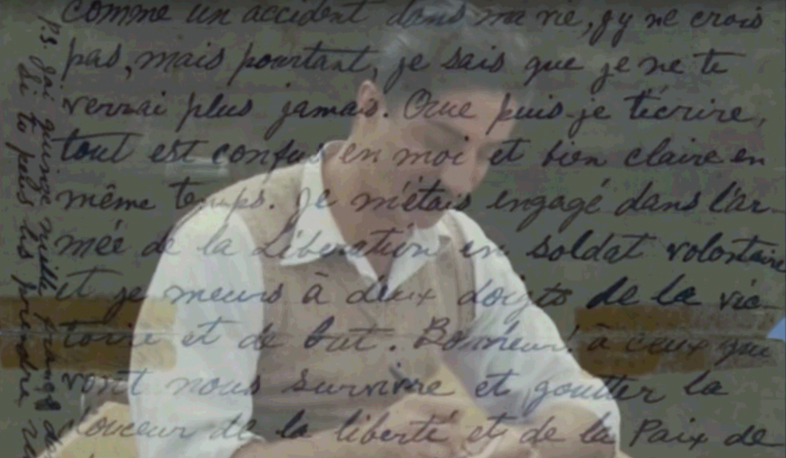 comme un accident dans ma vie, j'y ne crois
pas, mais pourtant, je sais que je ne te
verrai plus jamais. Que puis-je t'écrire,
tout est confus en moi et bien claire en
même temps. Je m'étais engagé dans l'ar-
mée de la Libération en soldat volontaire
et je meurs à deux doigts de la vic-
toire et de but. Bonheur! à ceux que
vont nous survivre et goutter la
douceur de la liberté et de la Paix de
PS. J'ai quinze mille francs
si tu peux les prendre